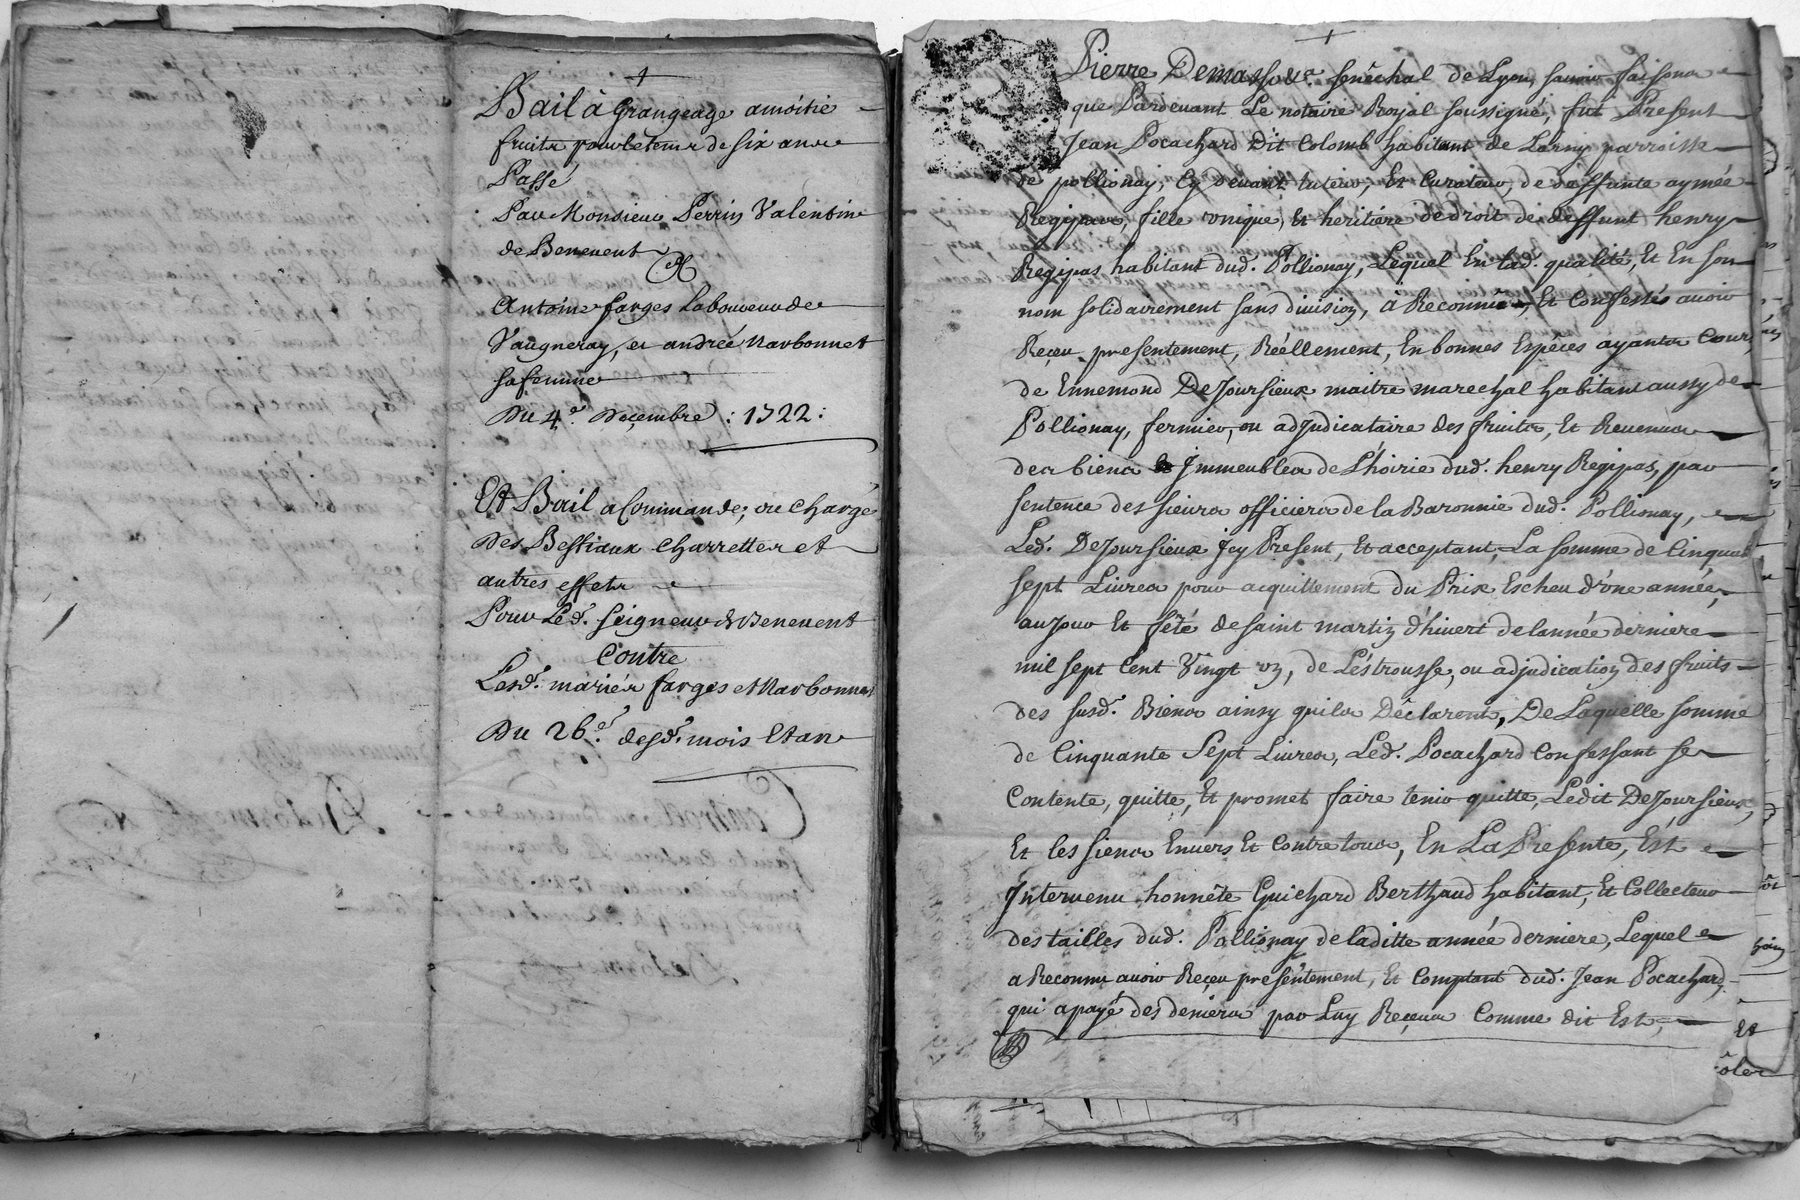 Bail à Grangeage amoitié
fruits pour le temps de six années
Passé
Par Monsieur Perrin Valentin
de Benevent
A
Antoine farges Laboureur de
Vaugneray, et andrée Narbonnet
sa femme
Du 4e. Decembre : 1722 :
Et Bail a Commande, ou Charge
Des Bestiaux Charrettes et
autres effets
Pour Led. Seigneur de Benevent
Contre
Lesd. mariés farges et Narbonnet
Du 26e. desd. mois Et an
Pierre Demassour Senêchal de Lyon, savoir faisons
que Pardevant Le notaire Royal soussigné, fut Present
Jean Pocachard Dit Colomb habitant de Larny parroisse
de pollionay, Cy devant tuteur, Et Curateur, de deffunte aymée
Regipas, fille vnique, Et heritiére de droit de deffunt henry
Regipas habitant dud. Pollionay, Lequel En lad. qualité, Et En son
nom solidairement sans division, à Reconnû, Et Confessés avoir
Reçeu presentement, Réellement, En bonnes Espéces ayants Cours,
de Ennemond DeJoursieux maitre maréchal habitant aussy de
Pollionay, fermier, ou adJudicataire des fruits, Et Revenus
des biens Jmmeubles de L'hoirie dud. henry Regipas, par
sentence des sieurs officiers de la Baronnie dud. Pollionay,
Led. DeJoursieux Jcy Present, Et acceptant, La somme de Cinquante
sept Livres pour acquittement du Prix Escheu d'vne année,
au Jour Et fête de saint martin d'hivert de l'année derniere
mil sept Cent Vingt vn, de L'éstrousse, ou adjudication des fruits
des susd. Biens ainsy qu'ils Déclarent, De Laquelle somme
de Cinquante Sept Livres, Led. Pocachard Confessant se
Contente, quitte, Et promet faire tenir quitte, Ledit DeJoursieux,
Et les siens Envers Et Contre tous, En La Presente, Est
Jntervenu honnête Guichard Berthaud habitant, Et Collecteur
des tailles dud. Pollionay de laditte année derniere, Lequel
a Reconnu avoir Reçeu présentement, Et Comptant dud. Jean Pocachard,
qui a payé des deniers par Luy Reçeus Comme dit Est,
Et